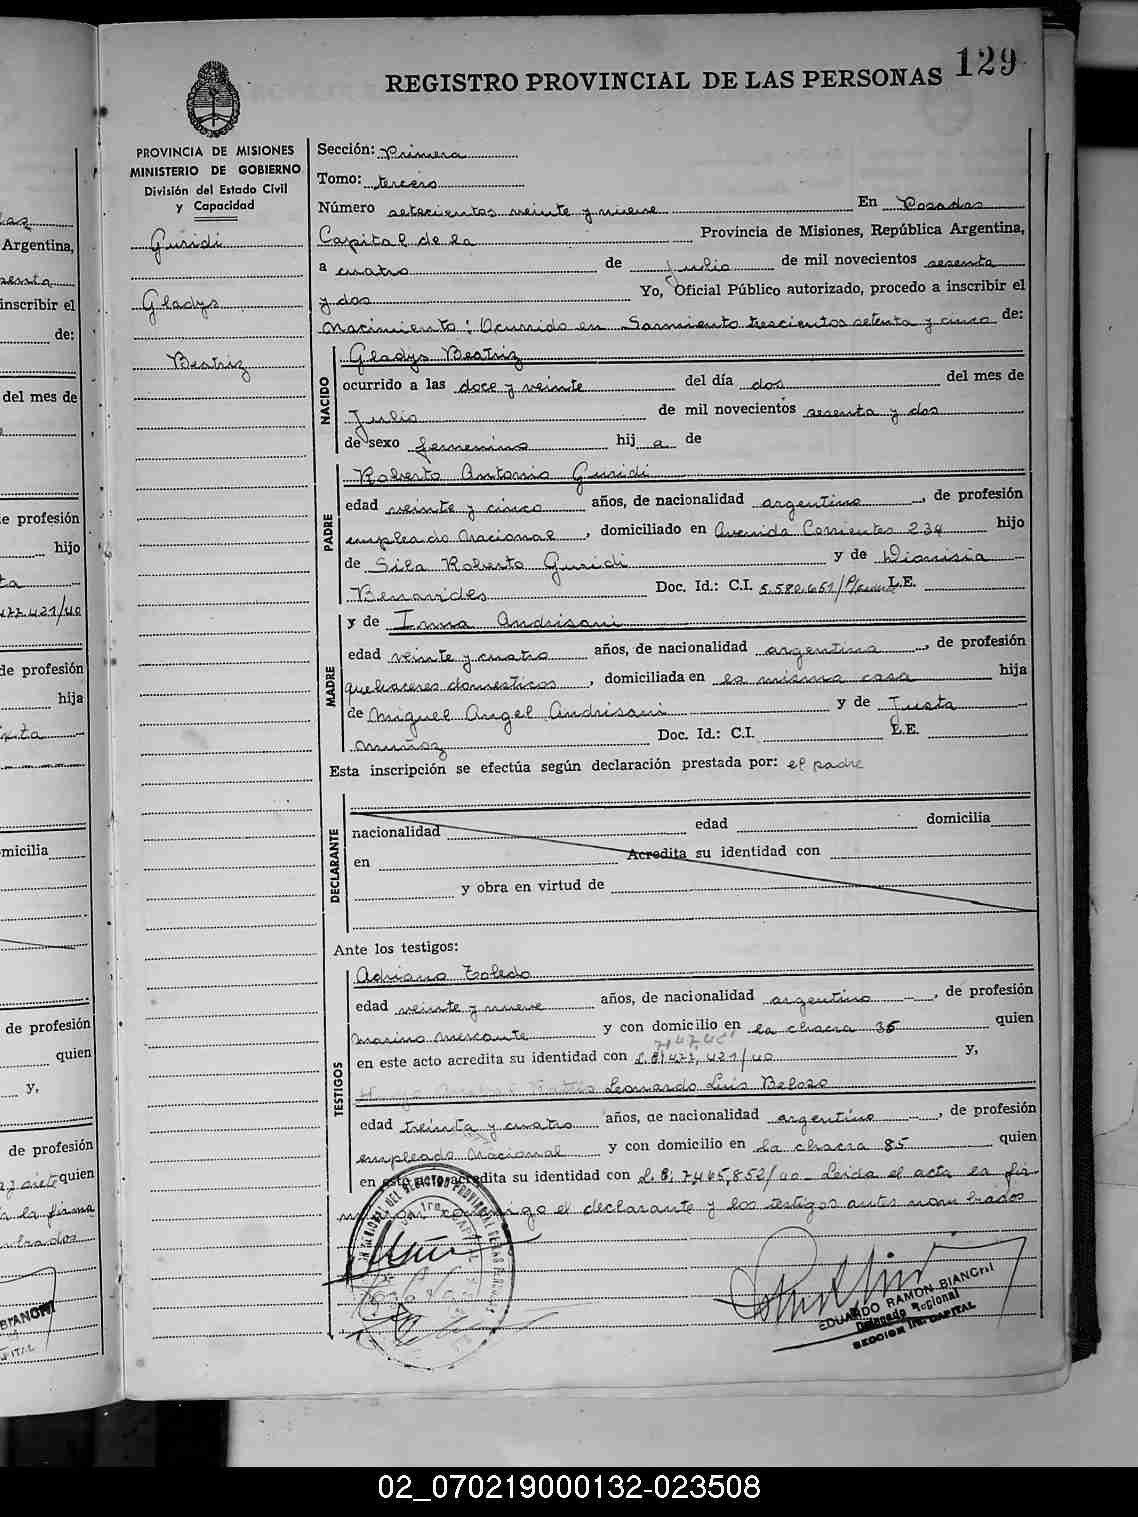 129
REGISTRO PROVINCIAL DE LAS PERSONAS
PROVINCIA DE MISIONES
MINISTERIO DE GOBIERNO
División del Estado Civil
y Capacidad
Guridi
Gladys
Beatriz
Sección: Primera
Tomo: tercero
Número setecientos veinte y nueve En Posadas
Capital de la Provincia de Misiones, República Argentina,
a cuatro de Julio de mil novecientos sesenta
y dos Yo, Oficial Público autorizado, procedo a inscribir el
Nacimiento: Ocurrido en Sarmiento trescientos setenta y cinco de:
NACIDO
Gladys Beatriz
ocurrido a las doce y veinte del día dos del mes de
Julio de mil novecientos sesenta y dos
de sexo femenino hij a de
PADRE
Roberto Antonio Guridi
edad veinte y cinco años, de nacionalidad argentino, de profesión
empleado Nacional, domiciliado en Avenida Corrientes 234 hijo
de Sila Roberto Guridi y de Dionisia
Benavides Doc. Id.: C.I. 5.580.651/ L.E.
MADRE
y de Irma Andrisani
edad veinte y cuatro años, de nacionalidad argentina, de profesión
quehaceres domesticos, domiciliada en la misma casa hija
de Miguel Angel Andrisani y de Justa
Muñoz Doc. Id.: C.I. L.E.
Esta inscripción se efectúa según declaración prestada por: el padre
DECLARANTE
nacionalidad edad domicilia
en Acredita su identidad con
y obra en virtud de
Ante los testigos:
TESTIGOS
Adriano Toledo
edad veinte y nueve años, de nacionalidad argentino, de profesión
Marino mercante y con domicilio en la chacra 36 quien
en este acto acredita su identidad con 477.421/40 y,
Leonardo Luis Beloso
edad treinta y cuatro años, de nacionalidad argentino, de profesión
empleado Nacional y con domicilio en la chacra 85 quien
en este acto acredita su identidad con L.E. 7,465,852/40 - Leida el acta la fir
man con migo el declarante y los testigos antes nombrados
EDUARDO RAMON BIANCHI
Delegado Regional
SECCION 1ra. CAPITAL
Argentina,
inscribir el
de:
del mes de
de profesión
hijo
477.421/40
de profesión
hija
de profesión
quien
y,
de profesión
quien
la firma
BIANCHI
02_070219000132-023508